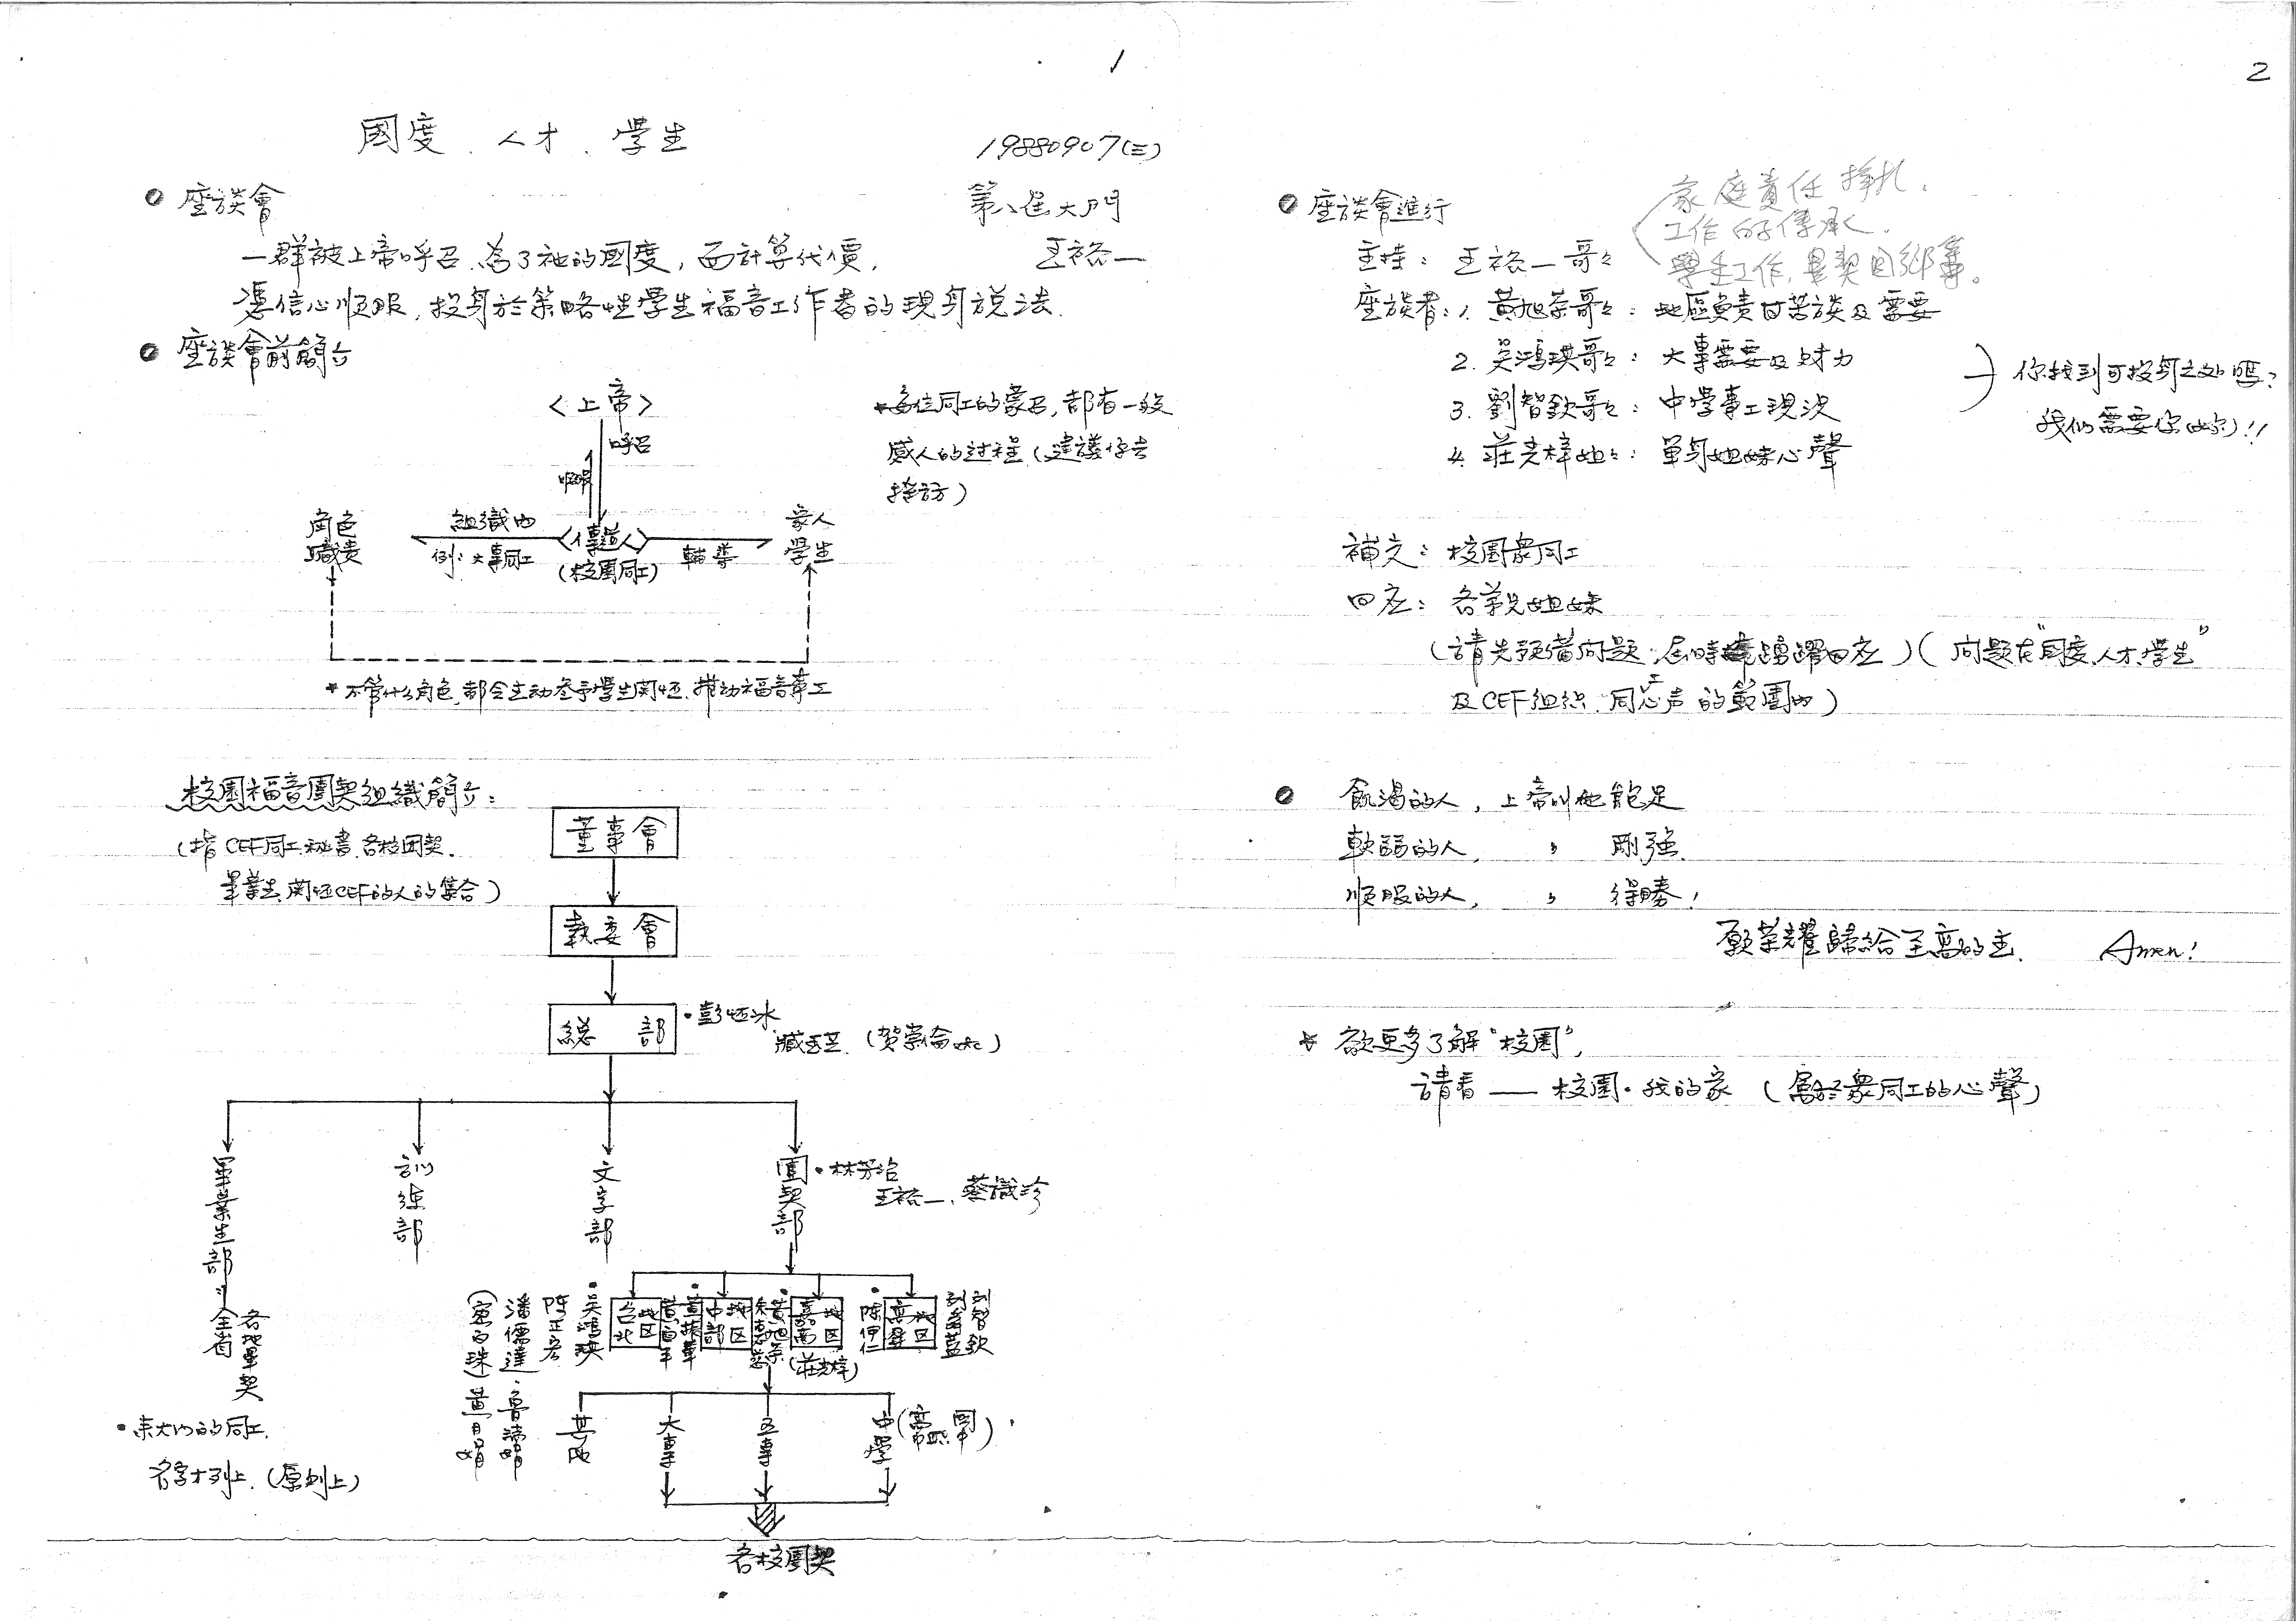 1
國度、人才、學生
19880907(三)
第八屆大門
王裕一
座談會
一群被上帝呼召、為了祂的國度，而計算代價，
憑信心順服，投身於策略性學生福音工作者的現身說法.
座談會前簡介
〈上帝〉
呼召
順服
角色
職責
組織內
例：大專同工
〈傳道人〉
(校園同工)
輔導
家人
學生
*每位同工的蒙召，都有一段
感人的过程（建議你去
採訪）
*不管什么角色，都会主动参予学生関怀、推动福音事工
校園福音團契組織簡介：
(指CEF同工、秘書、各校团契、
畢業生、関怀CEF的人的集合)
董事會
執委會
總部
•彭怀冰
(賀宗倫etc)
畢業生部
全省
各地畢契
訓練部
文字部
團契部
•林芳治
王裕一、蔡識珍
台北地区
•吳鴻琪
陈正宏
中部地区
嘉南地区
(莊光梓)
高雄地区
•陳伊仁
刘智欽
其他
大專
五專
中學
各校團契
•來大門的同工.
名字才列上.（原則上）
2
座談會進行
家庭責任掙扎.
工作的傳承.
主持：王裕一哥々
座談者：1. 黃旭榮哥々：地區負責甘苦談及需要
2. 吳鴻琪哥々：大專需要及財力
3. 劉智欽哥々：中學事工現況
4. 莊光梓姐々：單身姐妹心聲
你找到可投身之处嗎？
我们需要你(妳)!!
補充：校園眾同工
回应：各弟兄姐妹
(請先預備问題，屆時踴躍回应)(问題在"国度、人才、學生"
及CEF組织、同工心声的範圍內)
飢渴的人，上帝叫他飽足
軟弱的人，〃剛強.
順服的人，〃得勝！
願榮耀歸給至高的主. Amen!
*欲更多了解"校園"，
請看——校園•我的家（屬於眾同工的心聲）